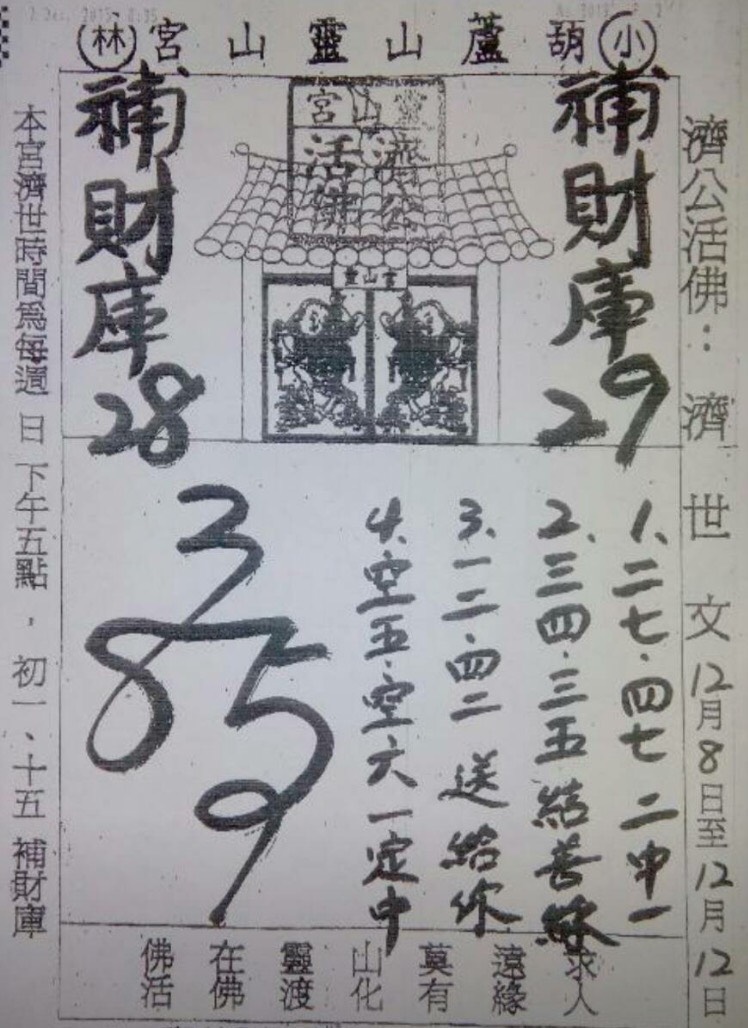 小葫蘆山靈山宮林
濟公活佛：濟世文12月8日至12月12日
補財庫29
靈山宮
濟公
活佛
靈山宮
補財庫28
1、二七．四七 二中一
2、三四．三五 結善緣
3、一二．四二 送給你
4、空五．空六一定中
3
85
9
求人
遠緣
莫有
山化
靈渡
在佛
佛活
本宮濟世時間為每週日下午五點，初一、十五補財庫